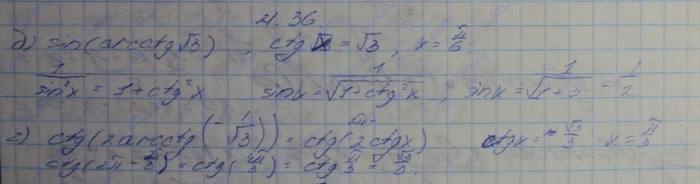 21.36.
б) sin(arcctg√3), ctg x = √3, x = π/6
1/sin²x = 1 + ctg²x sin x = 1/√(1+ctg²x), sin x = 1/√(1+3) = 1/2
г) ctg(2arcctg(-1/√3)) = ctg(2ctgx) ctgx = -√3/3 x = π/3
ctg(2π - 2π/3) = ctg(4π/3) = ctg π/3 = √3/3.